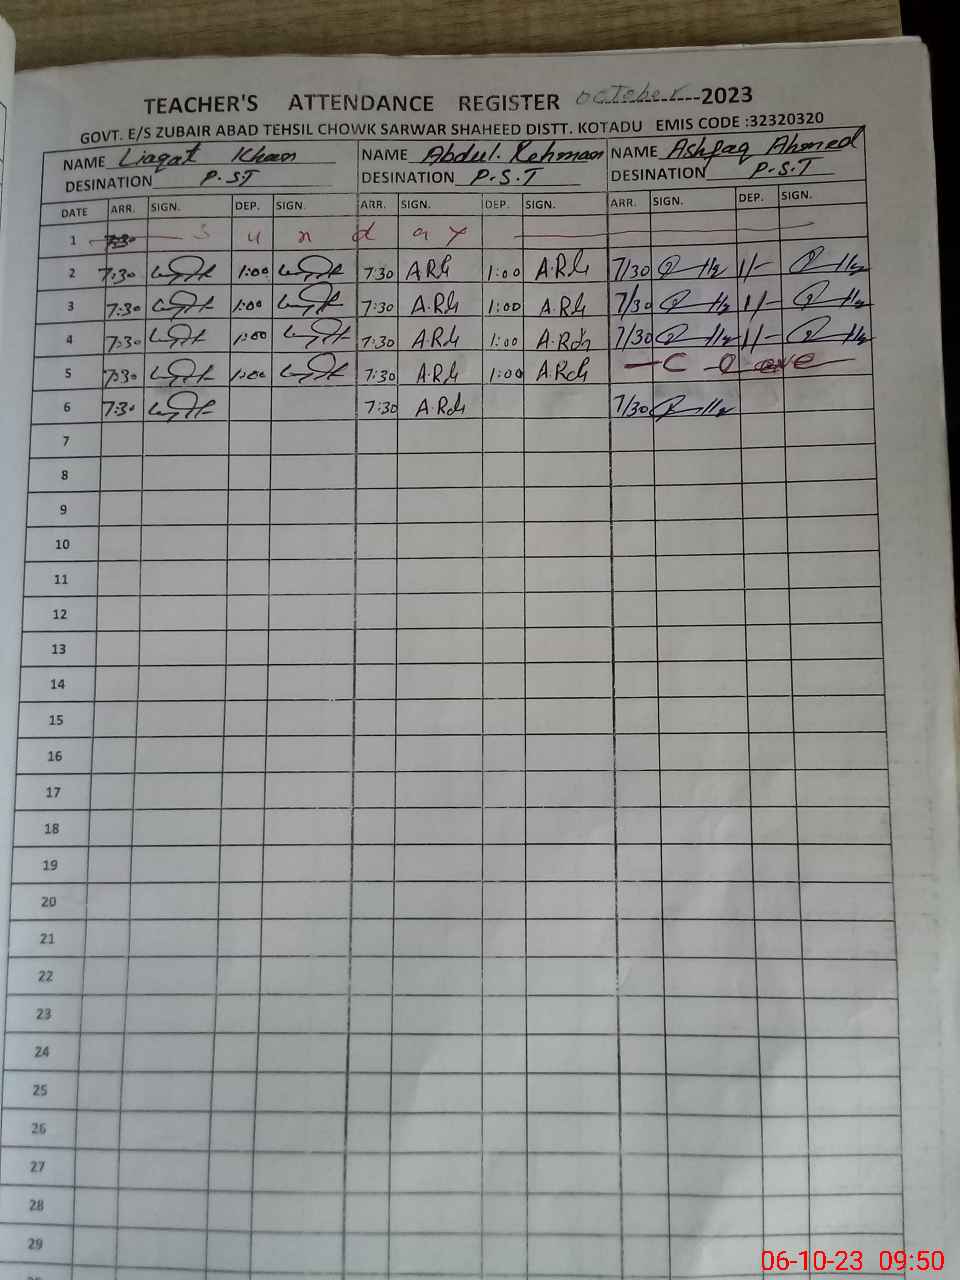 TEACHER'S ATTENDANCE REGISTER October 2023
GOVT. E/S ZUBAIR ABAD TEHSIL CHOWK SARWAR SHAHEED DISTT. KOTADU EMIS CODE :32320320
NAME Liaqat Khan NAME Abdul. Rehman NAME Ashfaq Ahmed
DESINATION P.S.T DESINATION P.S.T DESINATION P.S.T
DATE ARR. SIGN. DEP. SIGN. ARR. SIGN. DEP. SIGN. ARR. SIGN. DEP. SIGN.
1 Sunday
2 7:30 1:00 7:30 1:00 7/30 1/-
3 7:30 1:00 7:30 1:00 7/30 1/-
4 7:30 1:00 7:30 1:00 7/30 1/-
5 7:30 1:00 7:30 1:00 C leave
6 7:30 7:30 7/30
7
8
9
10
11
12
13
14
15
16
17
18
19
20
21
22
23
24
25
26
27
28
29
06-10-23 09:50